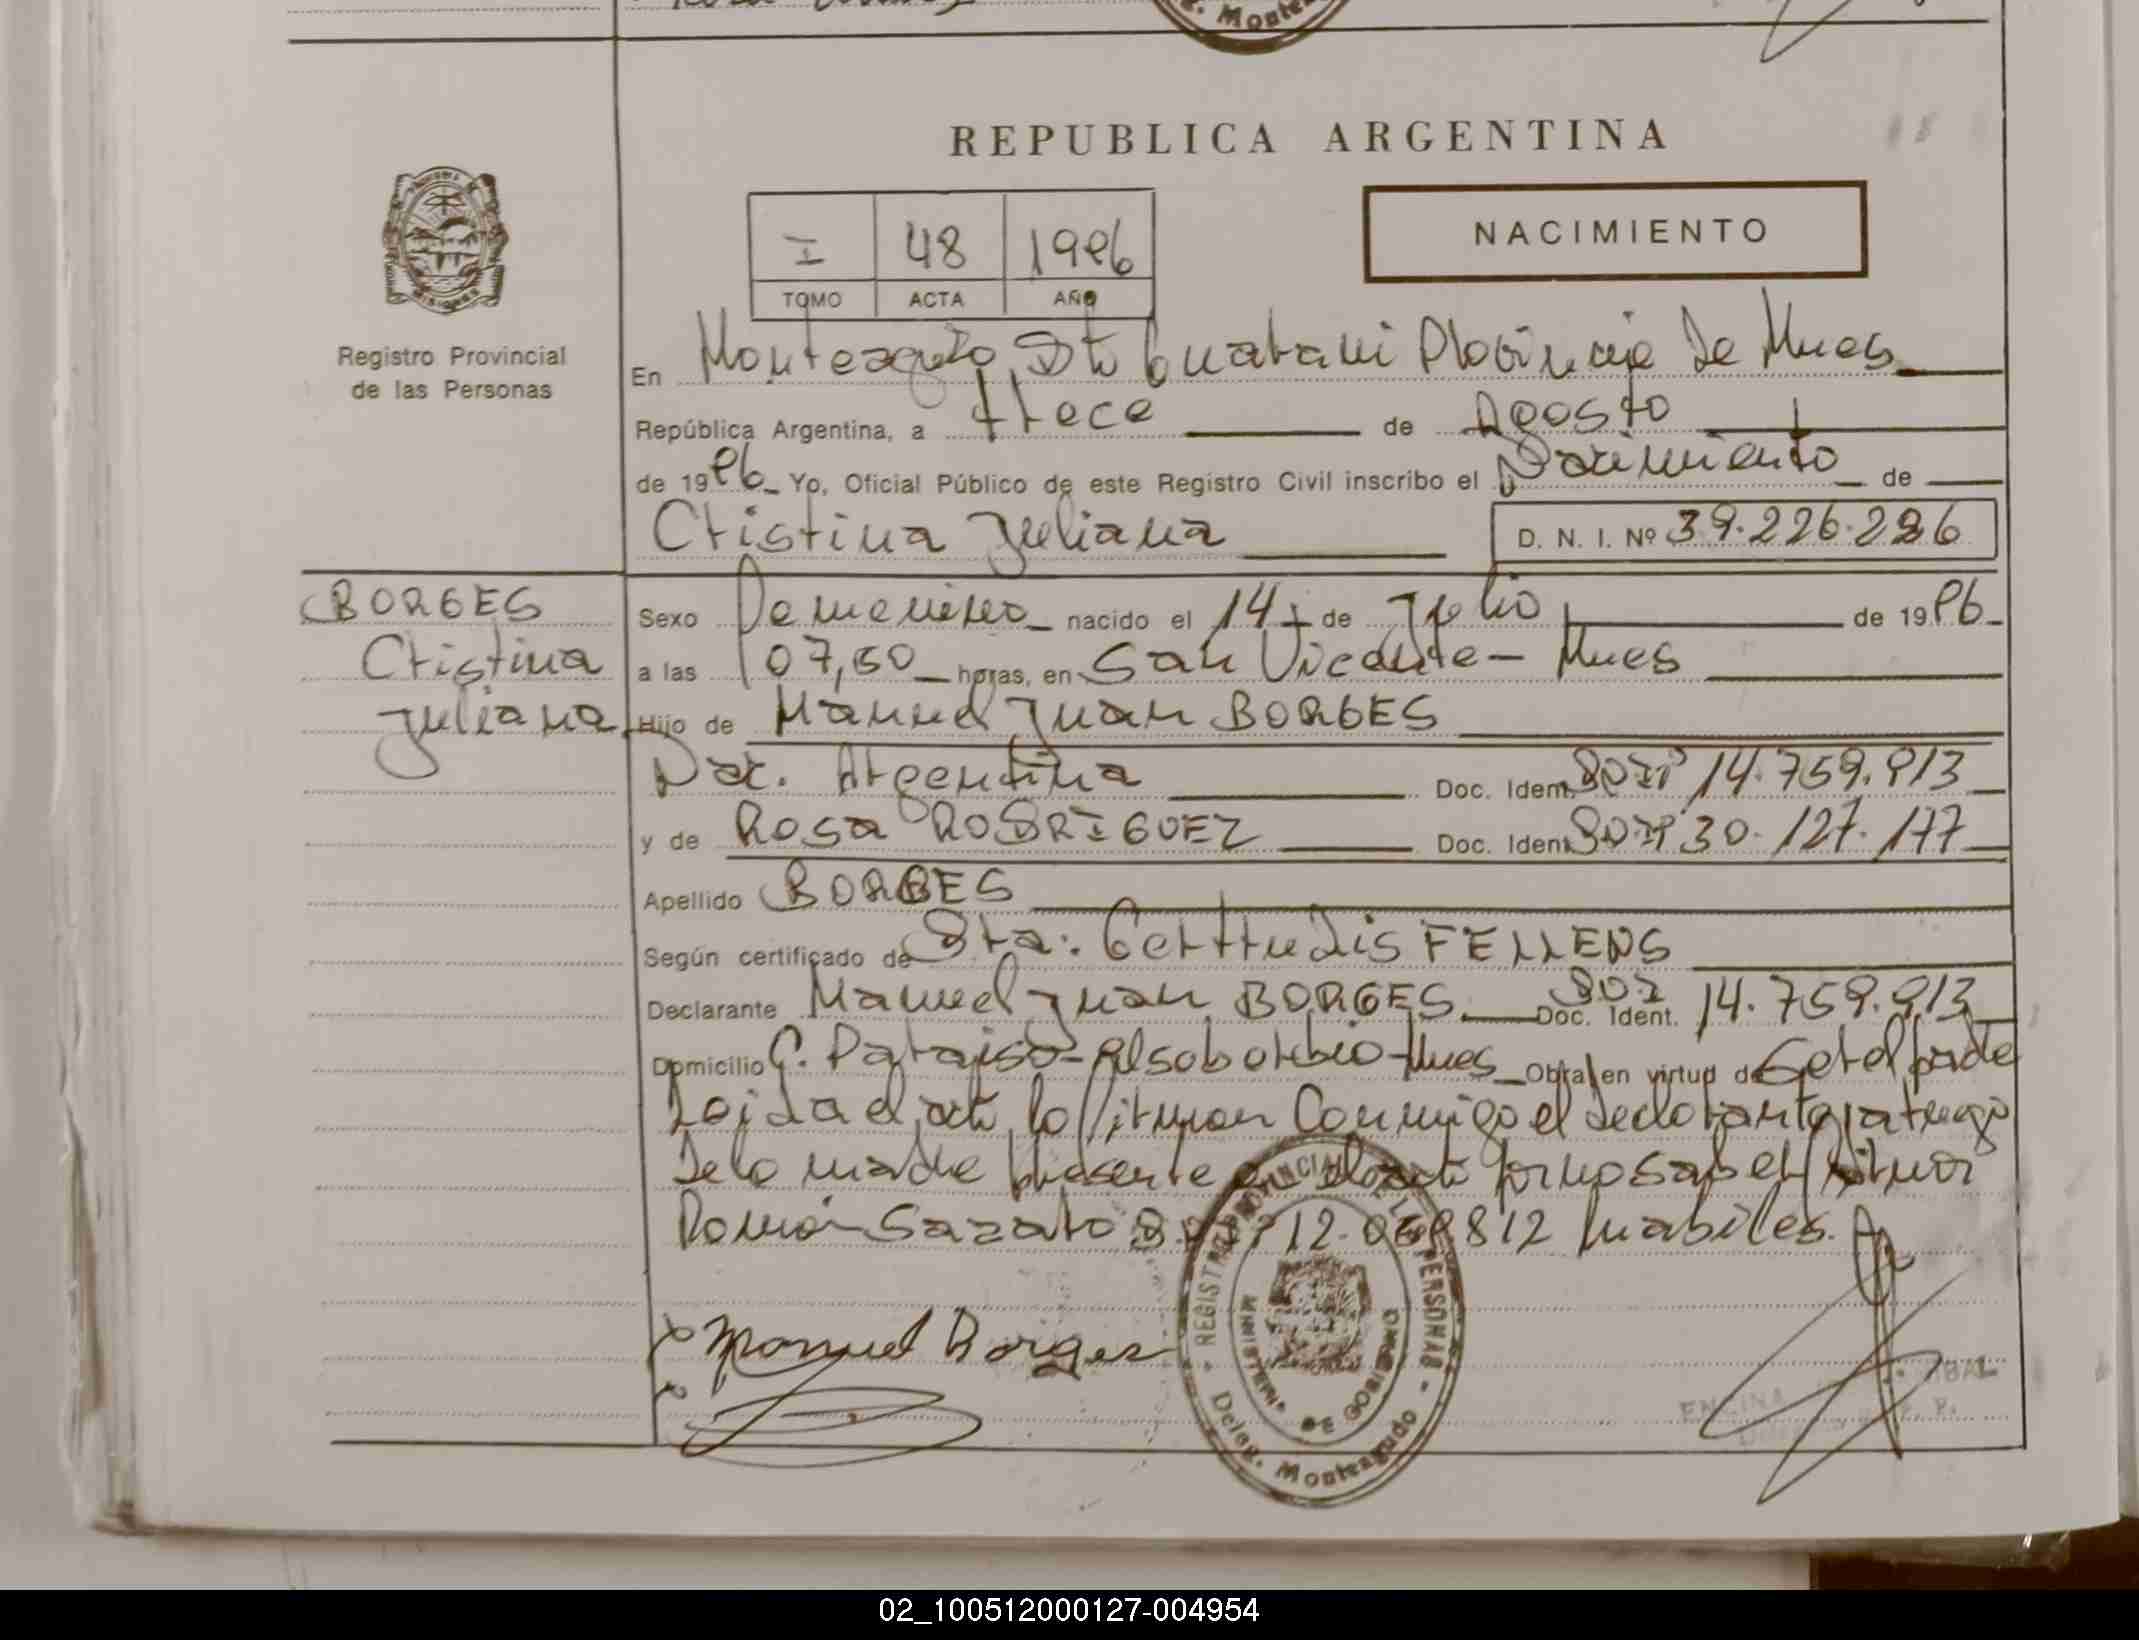 REPUBLICA ARGENTINA
NACIMIENTO
I 48 1986
TOMO ACTA AÑO
Registro Provincial
de las Personas
En Monteagudo Dto Guarani Provincia de Mnes
República Argentina, a trece de Agosto
de 1986 Yo, Oficial Público de este Registro Civil inscribo el Nacimiento de
Cristina Juliana D. N. I. Nº 39.226.286
BORGES
Cristina
Juliana
Sexo Femenino nacido el 14 de Julio de 1986
a las 07,50 horas, en San Vicente - Mnes
Hijo de Manuel Juan BORGES
Nac. Argentina Doc. Ident. DNI Nº 14.759.913
y de Rosa RODRIGUEZ Doc. Ident. DNI Nº 30.127.177
Apellido BORGES
Según certificado de Dra. Gertrudis FELLENS
Declarante Manuel Juan BORGES Doc. Ident. DNI 14.759.913
Domicilio C. Paraiso - Mnes Obra en virtud de Ser el padre
Leida el acta la firman Conmigo el declarante
de la madre presente acto por no saber firmar
Ramón 12. 812 habiles.
Manuel Borges
REGISTRO PROVINCIAL DE LAS PERSONAS
MINISTERIO DE GOBIERNO
Deleg. Monteagudo
02_100512000127-004954